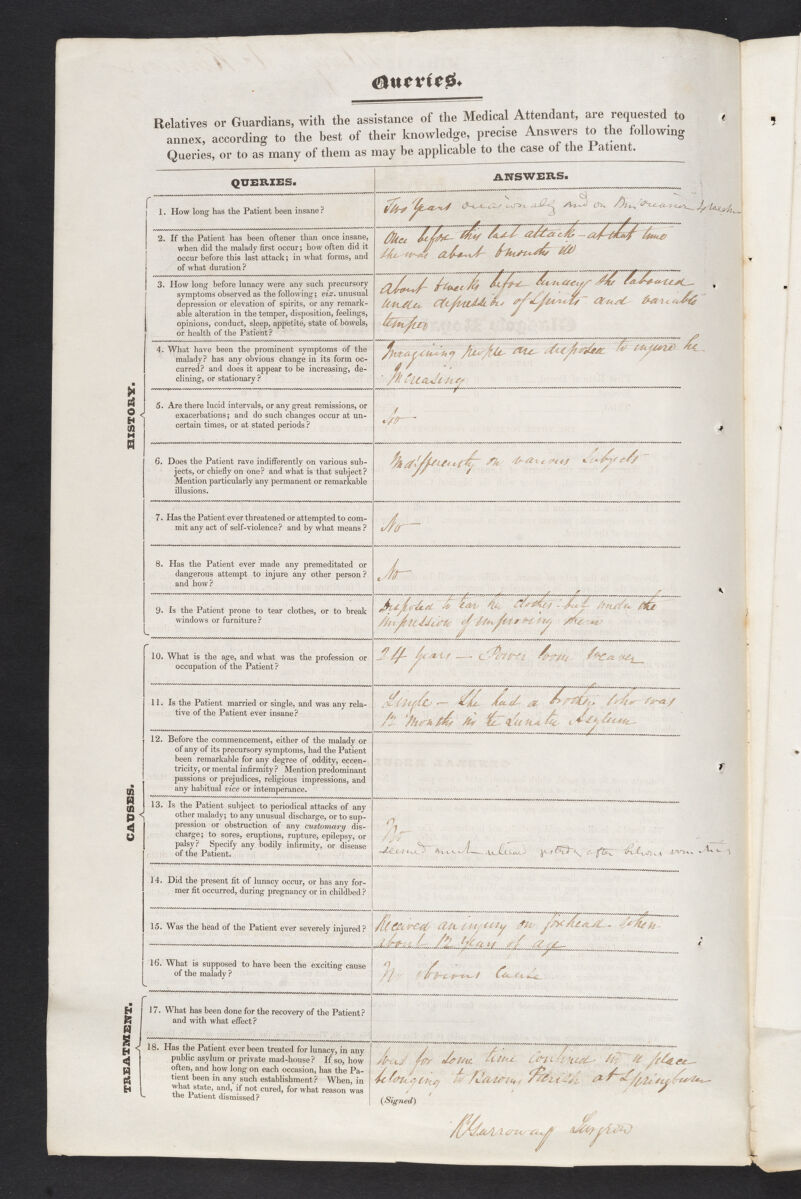 Queries.
Relatives or Guardians, with the assistance of the Medical Attendant, are requested to
annex, according to the best of their knowledge, precise Answers to the following
Queries, or to as many of them as may be applicable to the case of the Patient.
QUERIES.
ANSWERS.
HISTORY.
1. How long has the Patient been insane?
Two Years occasionally and on
2. If the Patient has been oftener than once insane,
when did the malady first occur; how often did it
occur before this last attack; in what forms, and
of what duration?
Once before this last attack – at that time
she was about 6 months ill
3. How long before lunacy were any such precursory
symptoms observed as the following; viz. unusual
depression or elevation of spirits, or any remark-
able alteration in the temper, disposition, feelings,
opinions, conduct, sleep, appetite, state of bowels,
or health of the Patient?
About 6 weeks before lunacy She laboured
under depression of Spirits and variable
temper
4. What have been the prominent symptoms of the
malady? has any obvious change in its form oc-
curred? and does it appear to be increasing, de-
clining, or stationary?
Imagining people are disposed to injure her
Increasing
5. Are there lucid intervals, or any great remissions, or
exacerbations; and do such changes occur at un-
certain times, or at stated periods?
No
6. Does the Patient rave indifferently on various sub-
jects, or chiefly on one? and what is that subject?
Mention particularly any permanent or remarkable
illusions.
Indifferently on various Subjects
7. Has the Patient ever threatened or attempted to com-
mit any act of self-violence? and by what means?
No –
8. Has the Patient ever made any premeditated or
dangerous attempt to injure any other person?
and how?
No
9. Is the Patient prone to tear clothes, or to break
windows or furniture?
Disposed to tear her clothes – but under the
impression of improving them
CAUSES.
10. What is the age, and what was the profession or
occupation of the Patient?
24 Years – Power loom Weaver
11. Is the Patient married or single, and was any rela-
tive of the Patient ever insane?
Single – She had a brother who was
12 Months in the Lunatic Asylum
12. Before the commencement, either of the malady or
of any of its precursory symptoms, had the Patient
been remarkable for any degree of oddity, eccen-
tricity, or mental infirmity? Mention predominant
passions or prejudices, religious impressions, and
any habitual vice or intemperance.
13. Is the Patient subject to periodical attacks of any
other malady; to any unusual discharge, or to sup-
pression or obstruction of any customary dis-
charge; to sores, eruptions, rupture, epilepsy, or
palsy? Specify any bodily infirmity, or disease
of the Patient.
No
seemed much relieved yesterday after bilious vomiting
14. Did the present fit of lunacy occur, or has any for-
mer fit occurred, during pregnancy or in childbed?
15. Was the head of the Patient ever severely injured?
Received an injury on forehead when
about 12 Years of age
16. What is supposed to have been the exciting cause
of the malady?
No obvious Cause
TREATMENT.
17. What has been done for the recovery of the Patient?
and with what effect?
18. Has the Patient ever been treated for lunacy, in any
public asylum or private mad-house? If so, how
often, and how long on each occasion, has the Pa-
tient been in any such establishment? When, in
what state, and, if not cured, for what reason was
the Patient dismissed?
Was for some time confined in a place
belonging to Barony Parish at Springburn
(Signed)
Surgeon